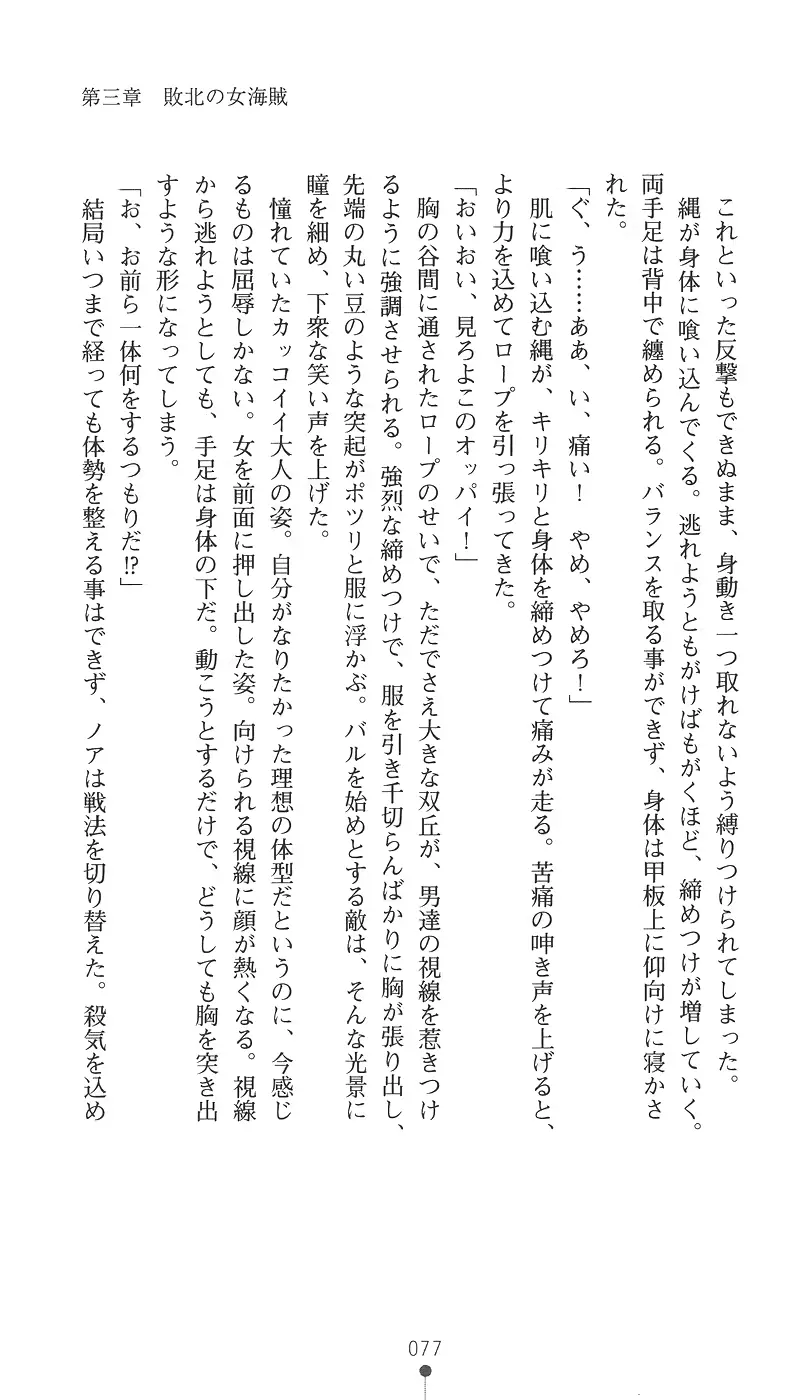 第三章　敗北の女海賊
これといった反撃もできぬまま、身動き一つ取れないよう縛りつけられてしまった。
縄が身体に喰い込んでくる。逃れようともがけばもがくほど、締めつけが増していく。
両手足は背中で纏められる。バランスを取る事ができず、身体は甲板上に仰向けに寝かさ
れた。
「ぐ、う……ああ、い、痛い！　やめ、やめろ！」
肌に喰い込む縄が、キリキリと身体を締めつけて痛みが走る。苦痛の呻き声を上げると、
より力を込めてロープを引っ張ってきた。
「おいおい、見ろよこのオッパイ！」
胸の谷間に通されたロープのせいで、ただでさえ大きな双丘が、男達の視線を惹きつけ
るように強調させられる。強烈な締めつけで、服を引き千切らんばかりに胸が張り出し、
先端の丸い豆のような突起がポツリと服に浮かぶ。バルを始めとする敵は、そんな光景に
瞳を細め、下衆な笑い声を上げた。
憧れていたカッコイイ大人の姿。自分がなりたかった理想の体型だというのに、今感じ
るものは屈辱しかない。女を前面に押し出した姿。向けられる視線に顔が熱くなる。視線
から逃れようとしても、手足は身体の下だ。動こうとするだけで、どうしても胸を突き出
すような形になってしまう。
「お、お前ら一体何をするつもりだ!?」
結局いつまで経っても体勢を整える事はできず、ノアは戦法を切り替えた。殺気を込め
077